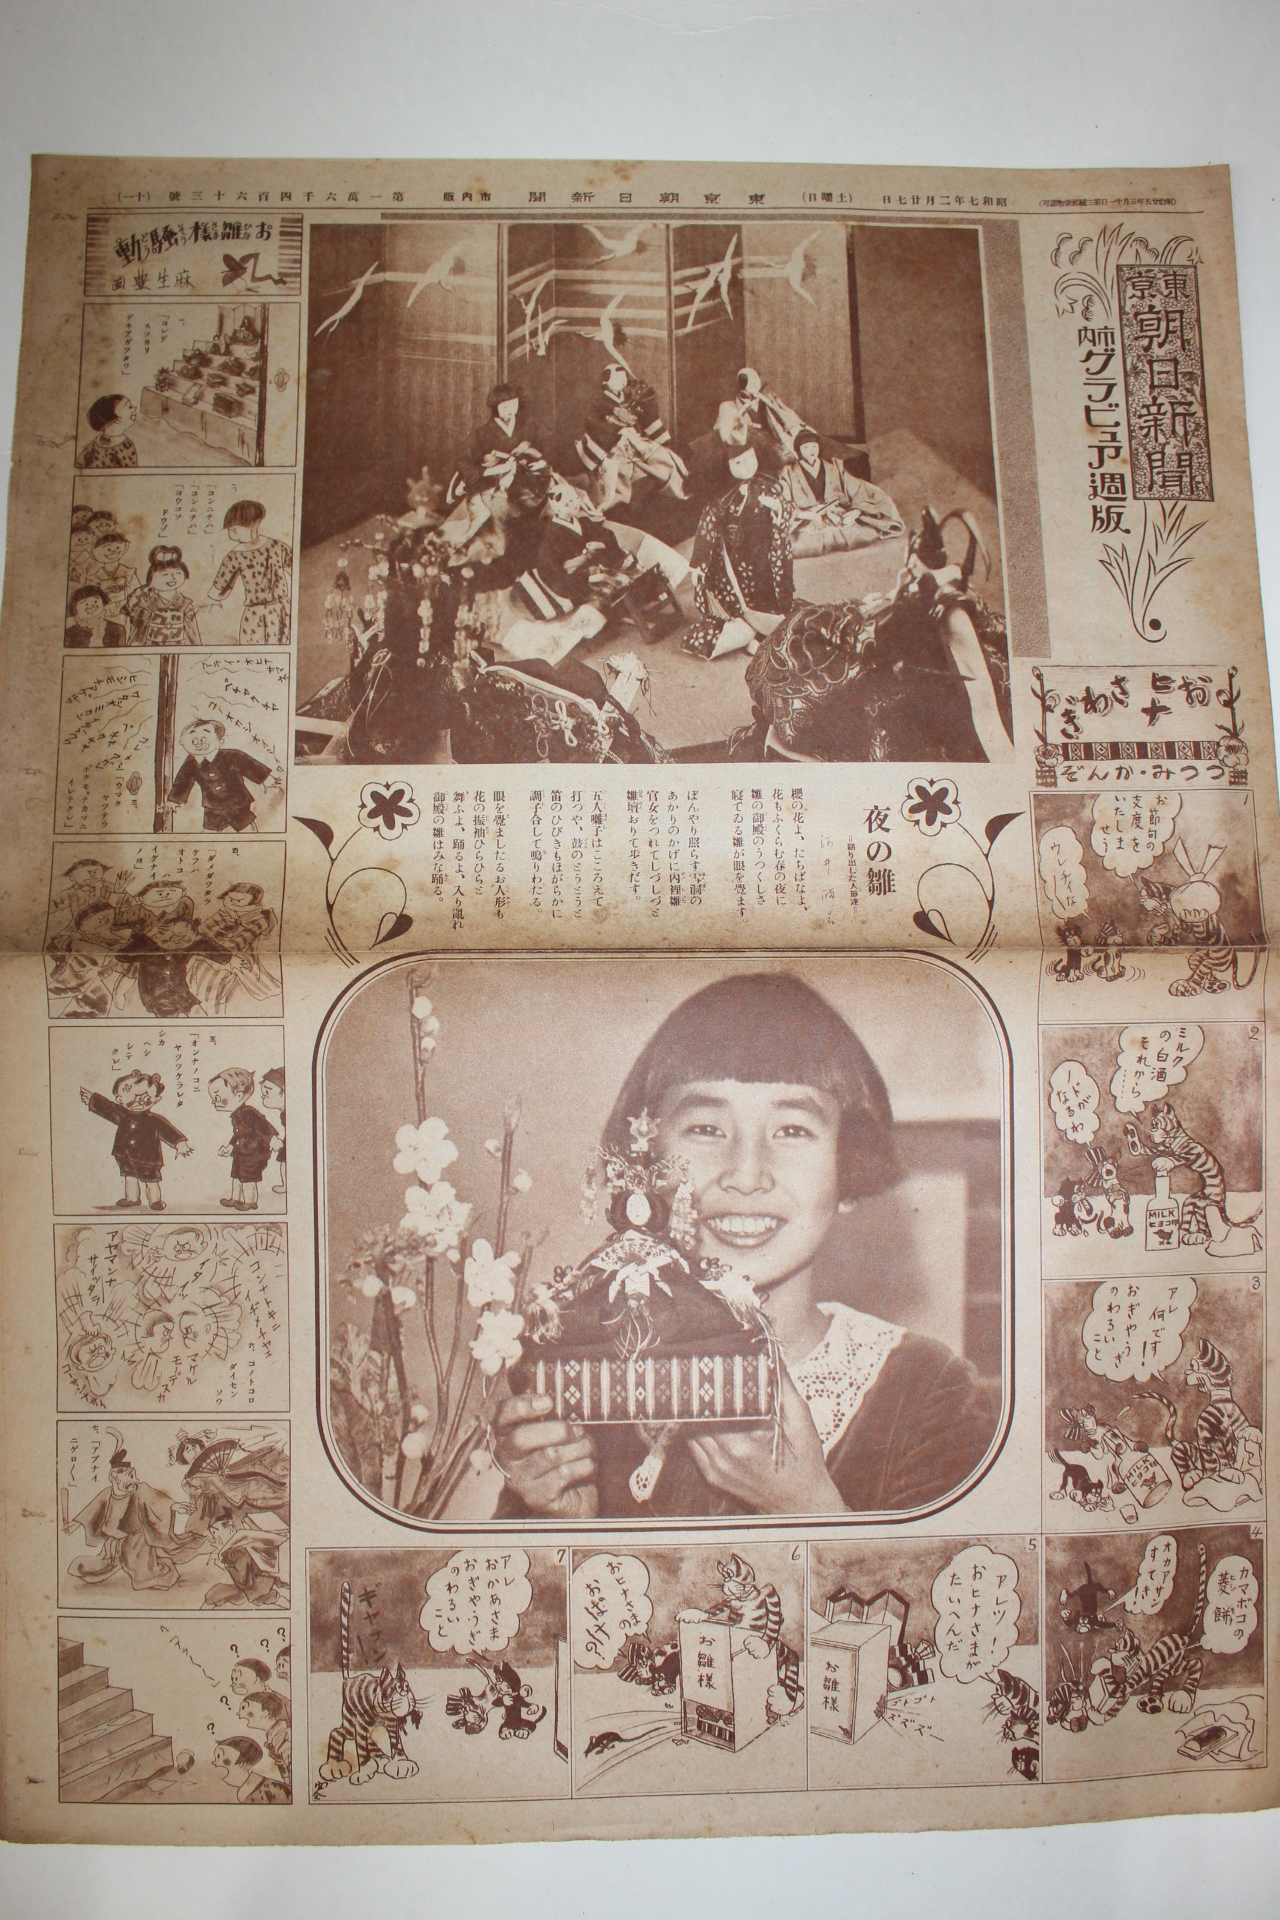 (明治廿五年三月卅一日第三種郵便物認可)
昭和七年二月廿七日
(土曜日)
東京朝日新聞
市内版
第一萬六千四百六十三號
(十一)
東京
朝日新聞
市内グラビュア週版
おヒナさわぎ
つつみ・かんぞ
1
お節句の
支度を
いたしま
せう
ウレーチィな
2
ミルク
の白酒
それから
……
ノドが
なるわ
3
アレ
何です!
おぎやうぎ
のわるい
こと
4
カマボコの
菱餅
オカアサン
すてき!
5
アレツ!
おヒナさまが
たいへんだ
お雛様
ゴトゴト
ズズズー
6
おヒナさま
の
おばけ?
お雛様
7
アレ
おかめさま
おぎやうぎ
のわるい
こと
ギャフン
MILK
MILK
夜の雛
=踊り出した人形達=
櫻の花よ、たちばなよ、
花もふくらむ春の夜に
雛の御殿のうつくしさ
寝てゐる雛が眼を覺ます。
ぼんやり照らす雪洞の
あかりのかげに内裡雛
官女をつれてしづしづと
雛壇おりて歩きだす。
五人囃子はこころえて
打つや、鼓のとうとうと
笛のひびきもほがらかに
調子合して鳴りわたる。
眼を覺ましたるお人形も
花の振袖ひらひらと
舞ふよ、踊るよ、入り亂れ
御殿の雛はみな踊る。
お雛樣騷動
麻生豊画
一、
「コレデ
スツカリ
デキアガツタワ」
二、
「コンニチハ」
「コンニチハ」
「ヨウコソ
ドウゾ」
「ウマク
ヤツテラ
ボクモ、ナカマニ
イレテクレ」
四、
「ダメダツタラ
ケフハ
オトコ
イケナイ
ノヨ」
五、
「オンナノコニ
ヤツツケラレタ
シカ
ヘシ
シテ
クレ」
六、コノトコロ
ダイセン
ソウ
イタイッ
マケル
モンデスカ
アヤマンナ
サイッタラ
七、「アブナイ
ニゲロ〳〵」
?
?
?
?